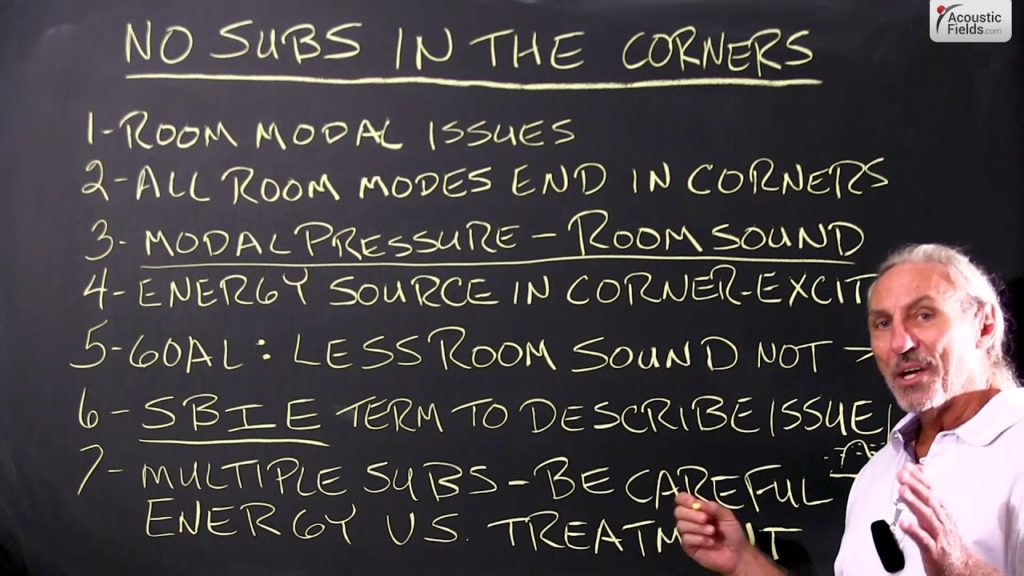 Acoustic
Fields.com
NO SUBS IN THE CORNERS
1-ROOM MODAL ISSUES
2-ALL ROOM MODES END IN CORNERS
3-MODAL PRESSURE-ROOM SOUND
4-ENERGY SOURCE IN CORNER-EXCIT
5-GOAL: LESS ROOM SOUND NOT →
6-SBIE TERM TO DESCRIBE ISSUE
7-MULTIPLE SUBS-BE CAREFUL
ENERGY VS. TREATMENT